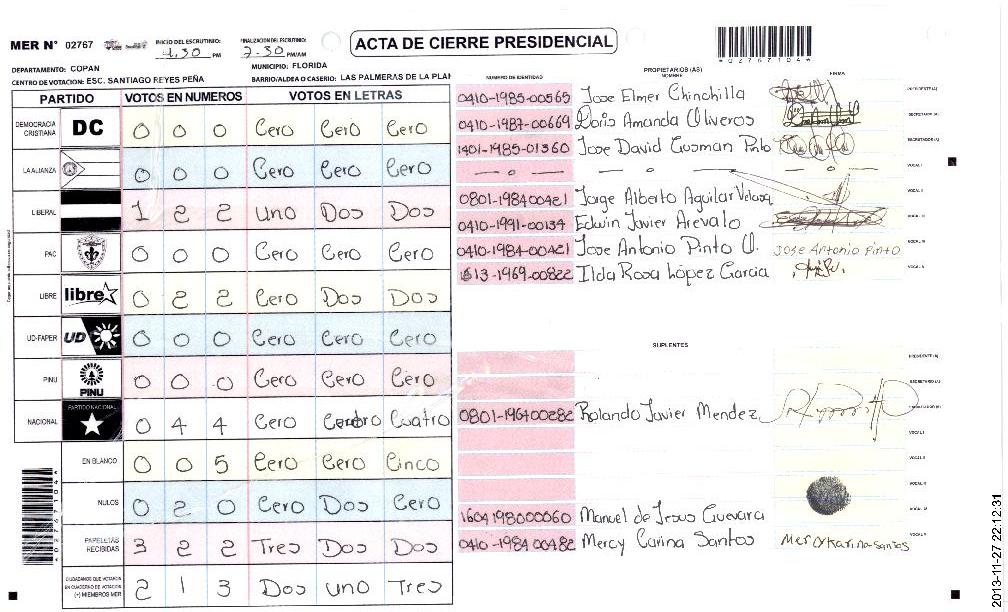 MER N° 02767
INICIO DEL ESCRUTINIO: 4.30 PM
FINALIZACION DEL ESCRUTINIO: 7-30 PM/AM
ACTA DE CIERRE PRESIDENCIAL
*02767104*
DEPARTAMENTO: COPAN
MUNICIPIO: FLORIDA
CENTRO DE VOTACION: ESC. SANTIAGO REYES PEÑA
BARRIO/ALDEA O CASERIO: LAS PALMERAS DE LA PLAN
PARTIDO VOTOS EN NUMEROS VOTOS EN LETRAS
DEMOCRACIA CRISTIANA DC 0 0 0 Cero Cero Cero
LA ALIANZA 0 0 0 Cero Cero Cero
LIBERAL 1 2 2 Uno Dos Dos
PAC 0 0 0 Cero Cero Cero
LIBRE libre 0 2 2 Cero Dos Dos
UD-FAPER UD 0 0 0 Cero Cero Cero
PINU PINU 0 0 0 Cero Cero Cero
NACIONAL PARTIDO NACIONAL 0 4 4 Cero Cuatro Cuatro
EN BLANCO 0 0 5 Cero Cero Cinco
NULOS 0 2 0 Cero Dos Cero
PAPELETAS RECIBIDAS 3 2 2 Tres Dos Dos
CIUDADANOS QUE VOTARON EN CUADERNO DE VOTACION (+) MIEMBROS MER 2 1 3 Dos Uno Tres
NUMERO DE IDENTIDAD PROPIETARIOS (AS) NOMBRE FIRMA
0410-1985-00565 Jose Elmer Chinchilla PRESIDENTE (A)
0410-1987-00669 Doris Amanda Oliveros SECRETARIO (A)
1401-1985-01360 Jose David Guzman Pinto ESCRUTADOR (A)
— o — — o — — o — VOCAL I
0801-198400421 Jorge Alberto Aguilar VOCAL II
0410-1991-00134 Edwin Javier Arevalo VOCAL III
0410-1984-00421 Jose Antonio Pinto O. Jose Antonio Pinto VOCAL IV
1613-1969-00822 Ilda Rosa López Garcia VOCAL V
SUPLENTES
PRESIDENTE (A)
SECRETARIO (A)
0801-196400282 Rolando Javier Mendez, ESCRUTADOR (A)
VOCAL I
VOCAL II
VOCAL III
1604198000060 Manuel de Jesus Guevara VOCAL IV
0410-198400482 Mercy Carina Santos Mercy Karina Santos VOCAL V
2013-11-27 22:12:31